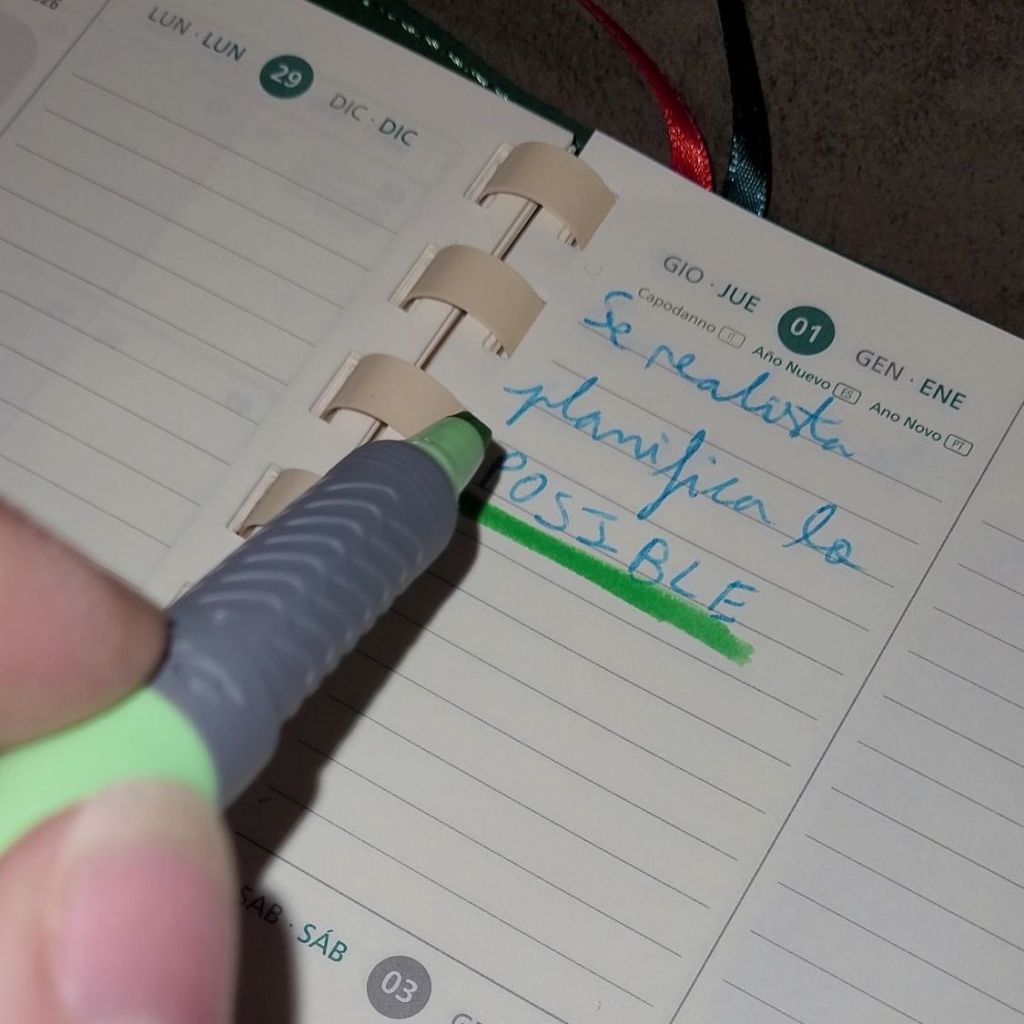 LUN · LUN 29 DIC · DIC
GIO · JUE 01 GEN · ENE
Capodanno IT Año Nuevo ES Ano Novo PT
Se realista
planifica lo
POSIBLE
SAB · SÁB 03